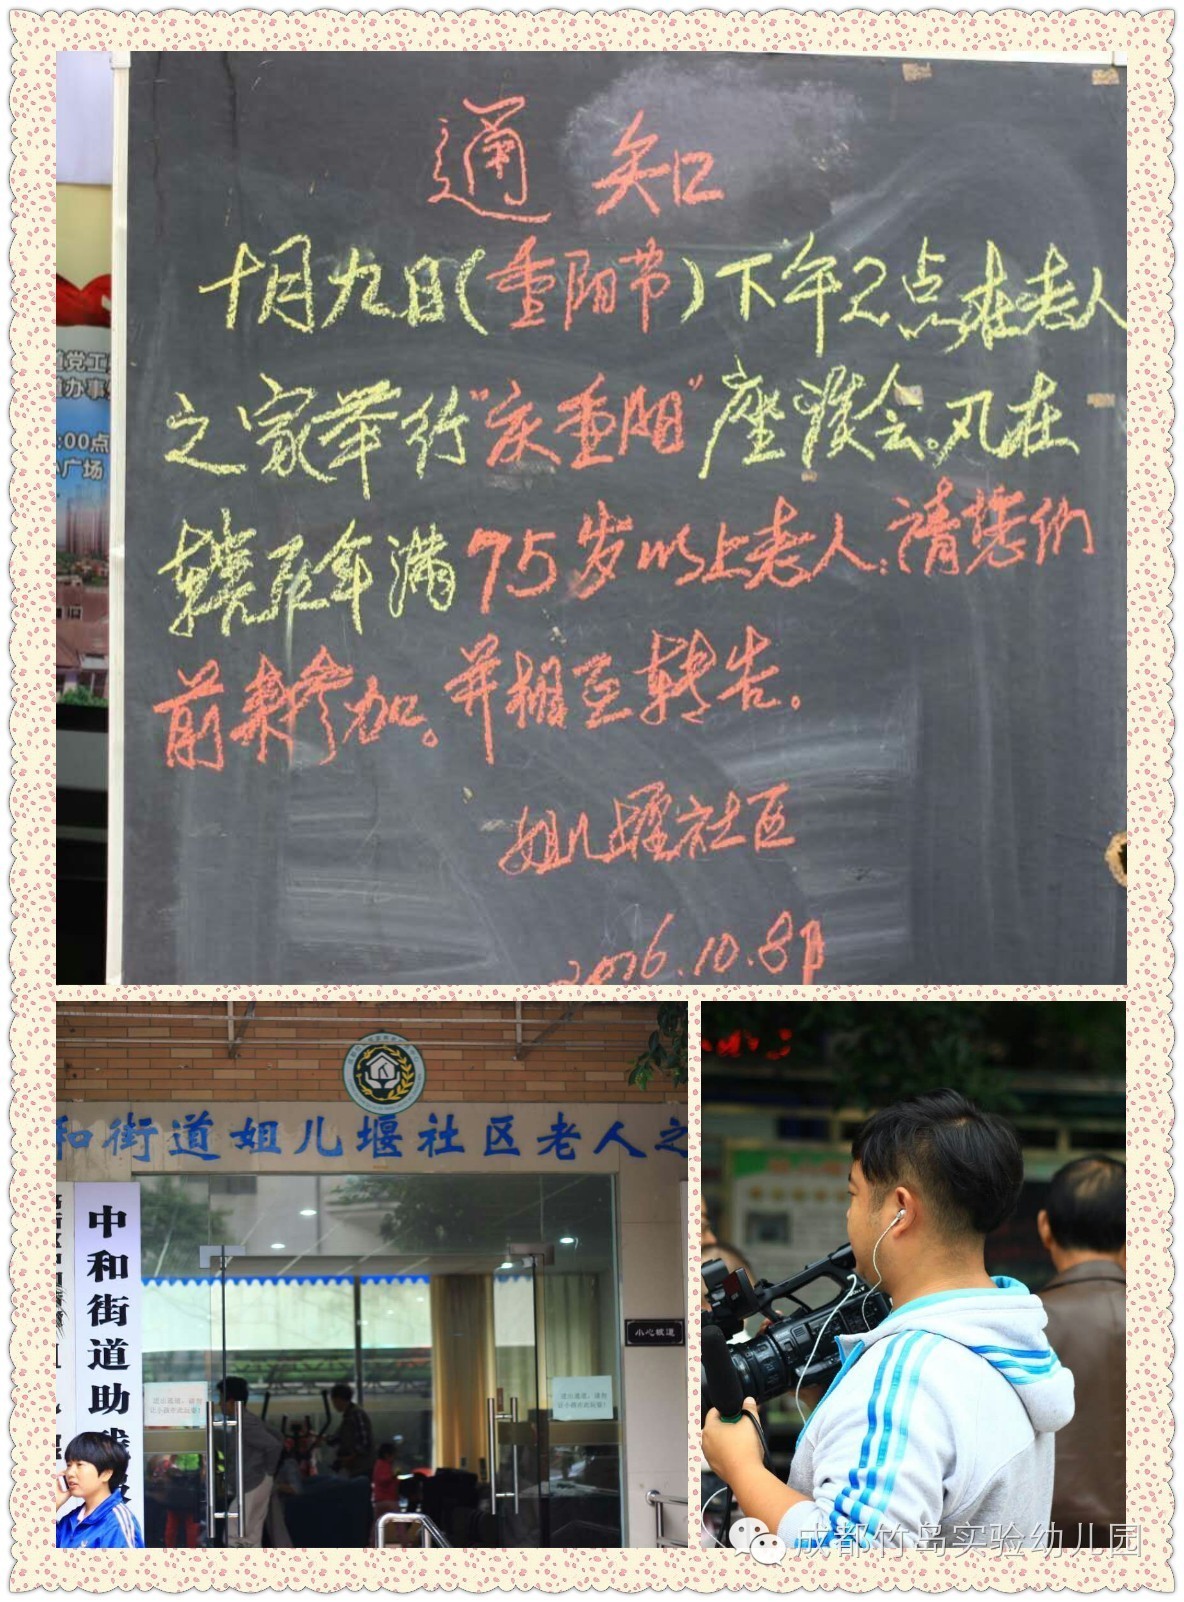 通知
十月九日(重阳节)下午2点在老人
之家举行"庆重阳"座谈会。凡在
辖区年满75岁以上老人,请您们
前来参加。并相互转告。
姐儿堰社区
2016.10.8日
道党工
道办事
:00点
广场
和街道姐儿堰社区老人之
中和街道助
小心坡道
成都竹岛实验幼儿园